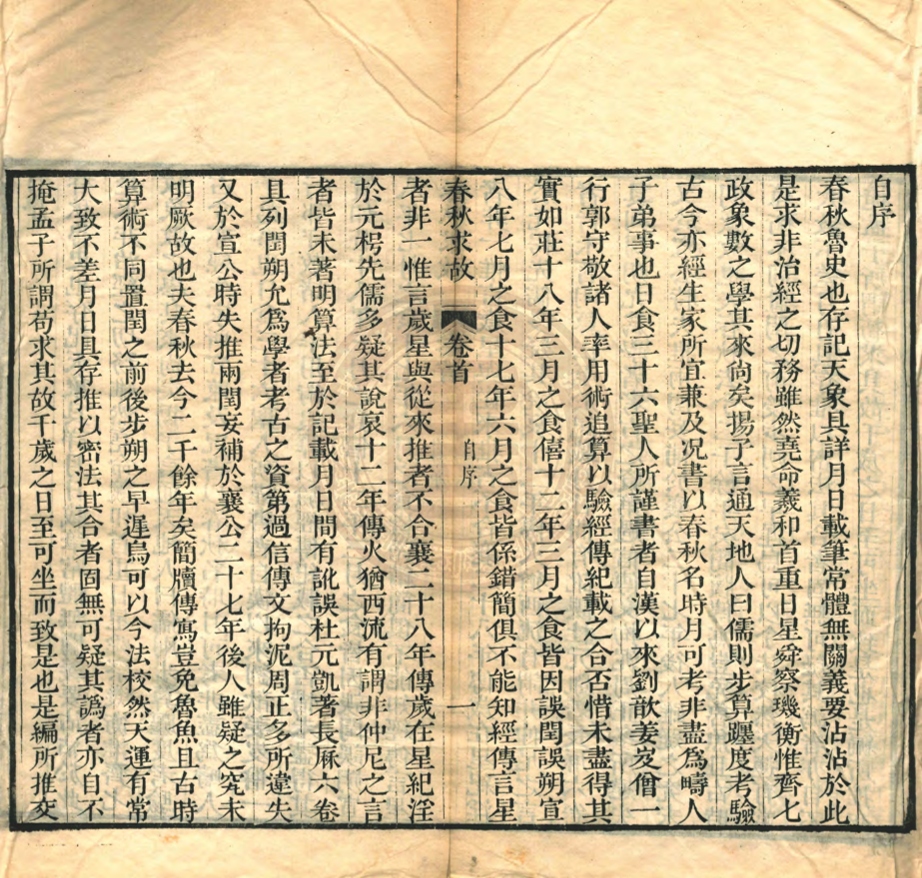 自序
春秋魯史也存記天象具詳月日載筆常體無關義要沾沾於此
是求非治經之切務雖然堯命羲和首重日星舜察璣衡惟齊七
政象數之學其來尚矣揚子言通天地人曰儒則步算躔度考驗
古今亦經生家所宜兼及况書以春秋名時月可考非盡爲疇人
子弟事也日食三十六聖人所謹書者自漢以來劉歆姜岌僧一
行郭守敬諸人率用術追算以驗經傳紀載之合否惜未盡得其
實如莊十八年三月之食僖十二年三月之食皆因誤閏誤朔宣
八年七月之食十七年六月之食皆係錯簡俱不能知經傳言星
春秋求故 卷首 自序 一
者非一惟言歲星與從來推者不合襄二十八年傳歲在星紀淫
於元枵先儒多疑其說哀十二年傳火猶西流有謂非仲尼之言
者皆未著明算法至於記載月日間有訛誤杜元凱著長厤六卷
具列閏朔允爲學者考古之資第過信傳文拘泥周正多所違失
又於宣公時失推兩閏妄補於襄公二十七年後人雖疑之究未
明厥故也夫春秋去今二千餘年矣簡牘傳寫豈免魯魚且古時
算術不同置閏之前後步朔之早遲烏可以今法校然天運有常
大致不差月日具存推以密法其合者固無可疑其譌者亦自不
掩孟子所謂苟求其故千歲之日至可坐而致是也是編所推交